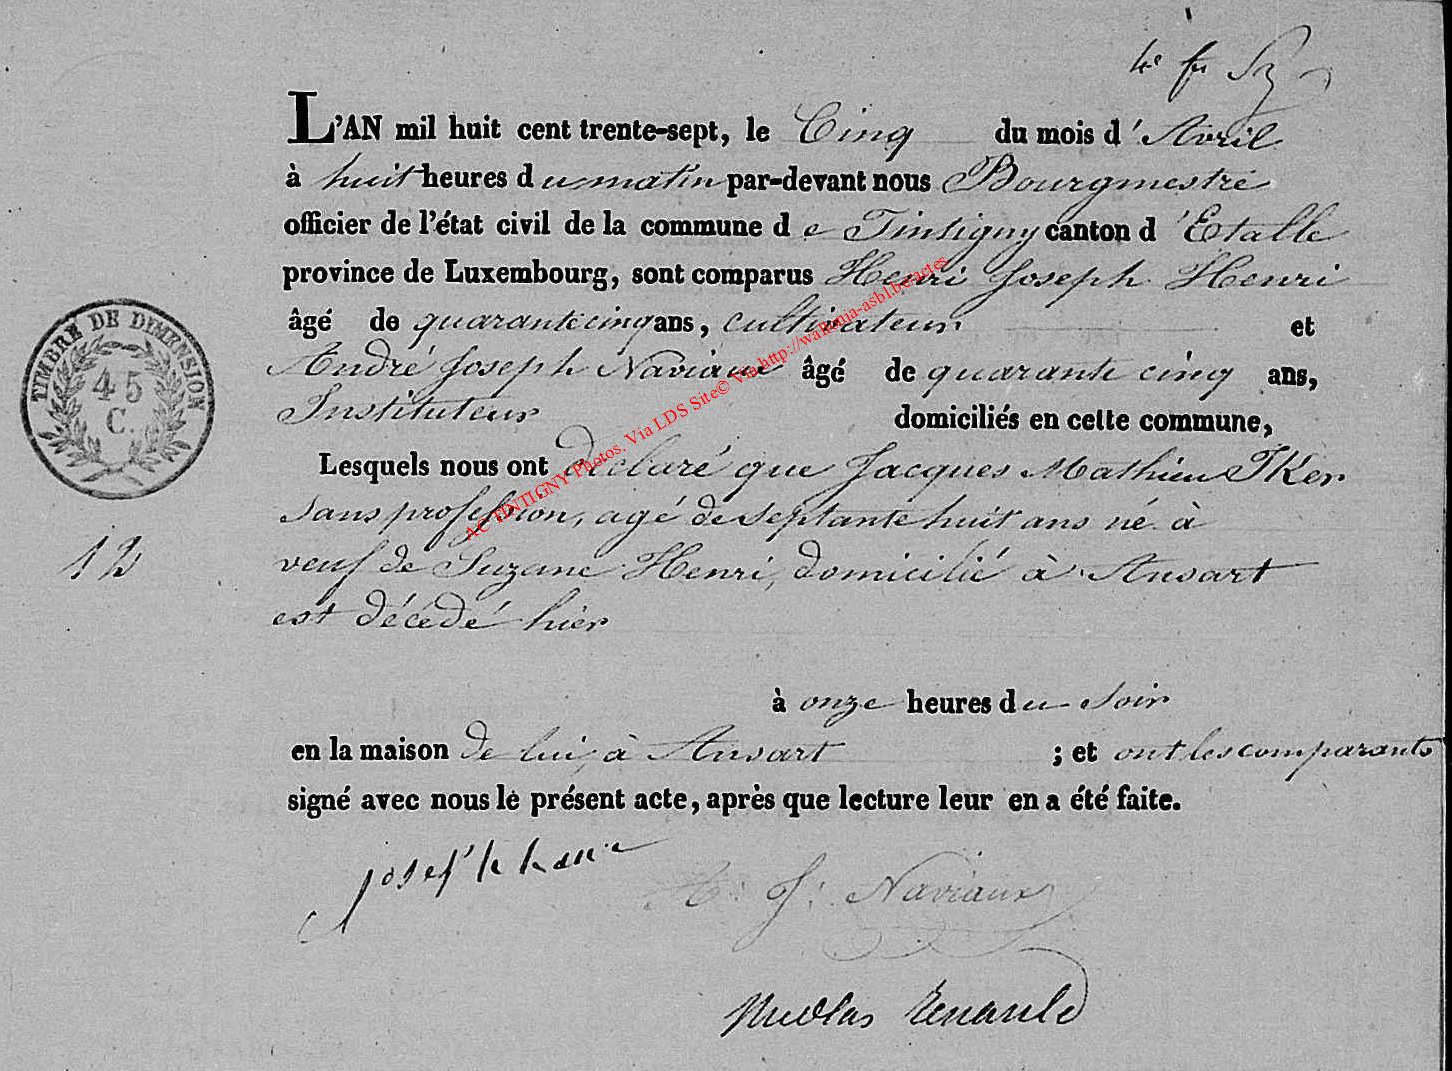 L'AN mil huit cent trente-sept, le Cinq du mois d'Avril
à huit heures du matin par-devant nous Bourgmestre
officier de l'état civil de la commune de Tintigny canton d'Etalle
province de Luxembourg, sont comparus Henri Joseph Henri
âgé de quarante cinq ans, cultivateur et
André Joseph Naviaux âgé de quarante cinq ans,
Instituteur domiciliés en cette commune,
Lesquels nous ont déclaré que Jacques Mathieu IKer
sans profession, agé de septante huit ans né à
veuf de Suzane Henri, domicilié à Ansart
est décédé hier
à onze heures du soir
en la maison de lui, à Ansart ; et ont les comparants
signé avec nous le présent acte, après que lecture leur en a été faite.
A: J: Naviaux
Nicolas Renauld
TIMBRE DE DIMENSION
45
C.
12
AC TINTIGNY Photos. Via LDS Site© Via http://wallonia-asbl.be/actes